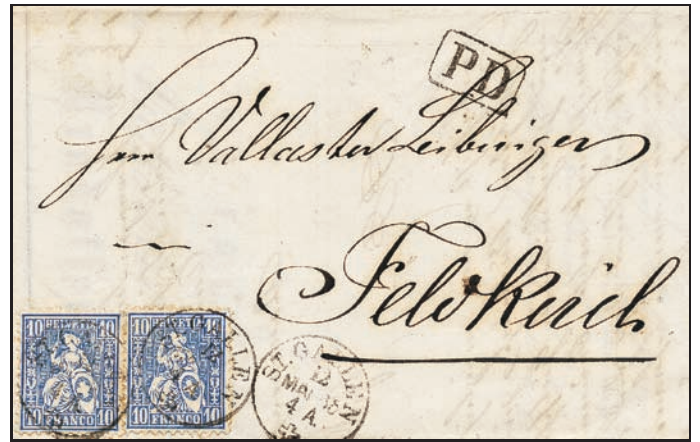 PD
Herrn Vallaster Leibinger
in
Feldkirch
10 HELVETIA 10
10 FRANCO 10
10 HELVETIA 10
10 FRANCO 10
GALLEN
12
ST GALLEN
12
MAI
4 A.